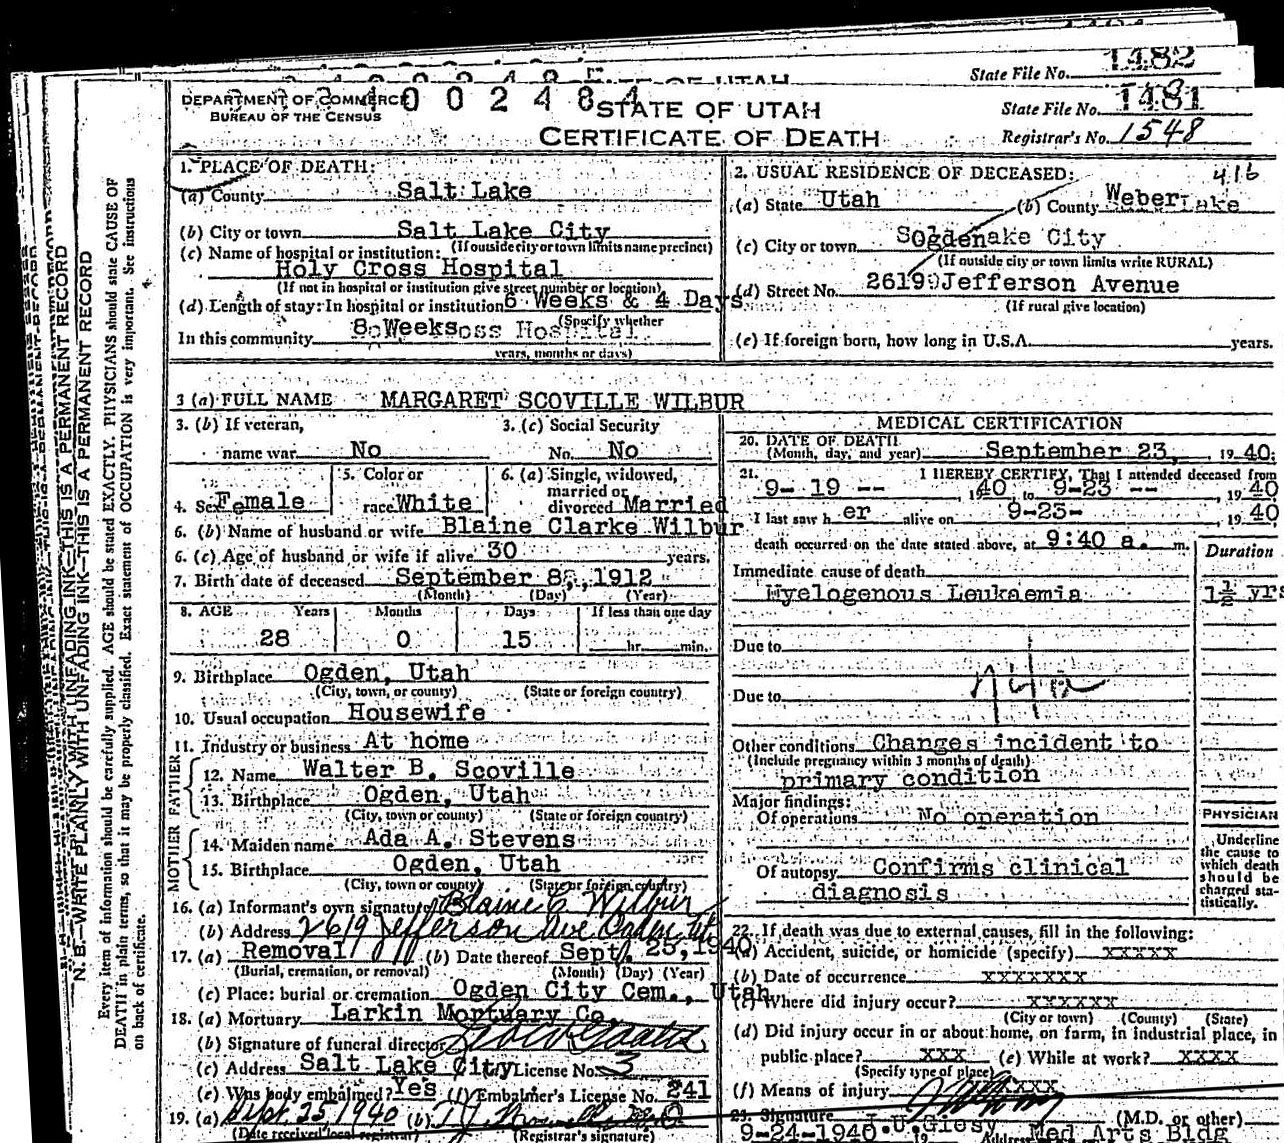 1482
State File No.
DEPARTMENT OF COMMERCE
BUREAU OF THE CENSUS
0 0 2 4 8 4
STATE OF UTAH
CERTIFICATE OF DEATH
State File No. 1481
Registrar's No. 1548
1. PLACE OF DEATH:
(a) County Salt Lake
(b) City or town Salt Lake City
(If outside city or town limits name precinct)
(c) Name of hospital or institution:
Holy Cross Hospital
(If not in hospital or institution give street number or location)
(d) Length of stay: In hospital or institution 6 Weeks & 4 Days
(Specify whether
In this community 8 Weeks
years, months or days)
2. USUAL RESIDENCE OF DECEASED: 416
(a) State Utah (b) County Weber
(c) City or town Ogden
(If outside city or town limits write RURAL)
(d) Street No. 2619 Jefferson Avenue
(If rural give location)
(e) If foreign born, how long in U.S.A. years.
3 (a) FULL NAME MARGARET SCOVILLE WILBUR
3. (b) If veteran,
name war No
3. (c) Social Security
No. No
4. Sex Female
5. Color or
race White
6. (a) Single, widowed,
married or
divorced Married
6. (b) Name of husband or wife Blaine Clarke Wilbur
6. (c) Age of husband or wife if alive 30 years.
7. Birth date of deceased September 8, 1912
(Month) (Day) (Year)
8. AGE Years Months Days If less than one day
28 0 15 hr. min.
9. Birthplace Ogden, Utah
(City, town, or county) (State or foreign country)
10. Usual occupation Housewife
11. Industry or business At home
FATHER
12. Name Walter B. Scoville
13. Birthplace Ogden, Utah
(City, town or county) (State or foreign country)
MOTHER
14. Maiden name Ada A. Stevens
15. Birthplace Ogden, Utah
(City, town or county) (State or foreign country)
16. (a) Informant's own signature Blaine C Wilbur
(b) Address 2619 Jefferson Ave Ogden, Ut
17. (a) Removal (b) Date thereof Sept. 25, 1940
(Burial, cremation, or removal) (Month) (Day) (Year)
(c) Place: burial or cremation Ogden City Cem., Utah
18. (a) Mortuary Larkin Mortuary Co.
(b) Signature of funeral director
(c) Address Salt Lake City License No. 3
(e) Was body embalmed? Yes (f) Embalmer's License No. 241
19. (a) Sept. 25 1940 (b)
(Date received local registrar) (Registrar's signature)
MEDICAL CERTIFICATION
20. DATE OF DEATH
(Month, day, and year) September 23, 1940.
21. I HEREBY CERTIFY, That I attended deceased from
9- 19 -- , 1940, to 9-23 -- , 1940
I last saw her alive on 9-23- , 1940
death occurred on the date stated above, at 9:40 a. m.
Duration
Immediate cause of death
Myelogenous Leukaemia 1½ yrs
Due to
Due to
Other conditions Changes incident to
(Include pregnancy within 3 months of death)
primary condition
Major findings:
Of operations No operation
Of autopsy Confirms clinical
diagnosis
PHYSICIAN
Underline
the cause to
which death
should be
charged sta-
tistically.
22. If death was due to external causes, fill in the following:
(a) Accident, suicide, or homicide (specify) xxxxx
(b) Date of occurrence xxxxxxx
(c) Where did injury occur? xxxxxx
(City or town) (County) (State)
(d) Did injury occur in or about home, on farm, in industrial place, in
public place? xxx (e) While at work? xxxx
(Specify type of place)
(f) Means of injury xxx
23. Signature J.U.Giesy (M.D. or other)
9-24-1940 Address Med Arts Bldg
N. B.—WRITE PLAINLY WITH UNFADING INK—THIS IS A PERMANENT RECORD
Every item of information should be carefully supplied. AGE should be stated EXACTLY. PHYSICIANS should state CAUSE OF
DEATH in plain terms, so that it may be properly classified. Exact statement of OCCUPATION is very important. See instructions
on back of certificate.